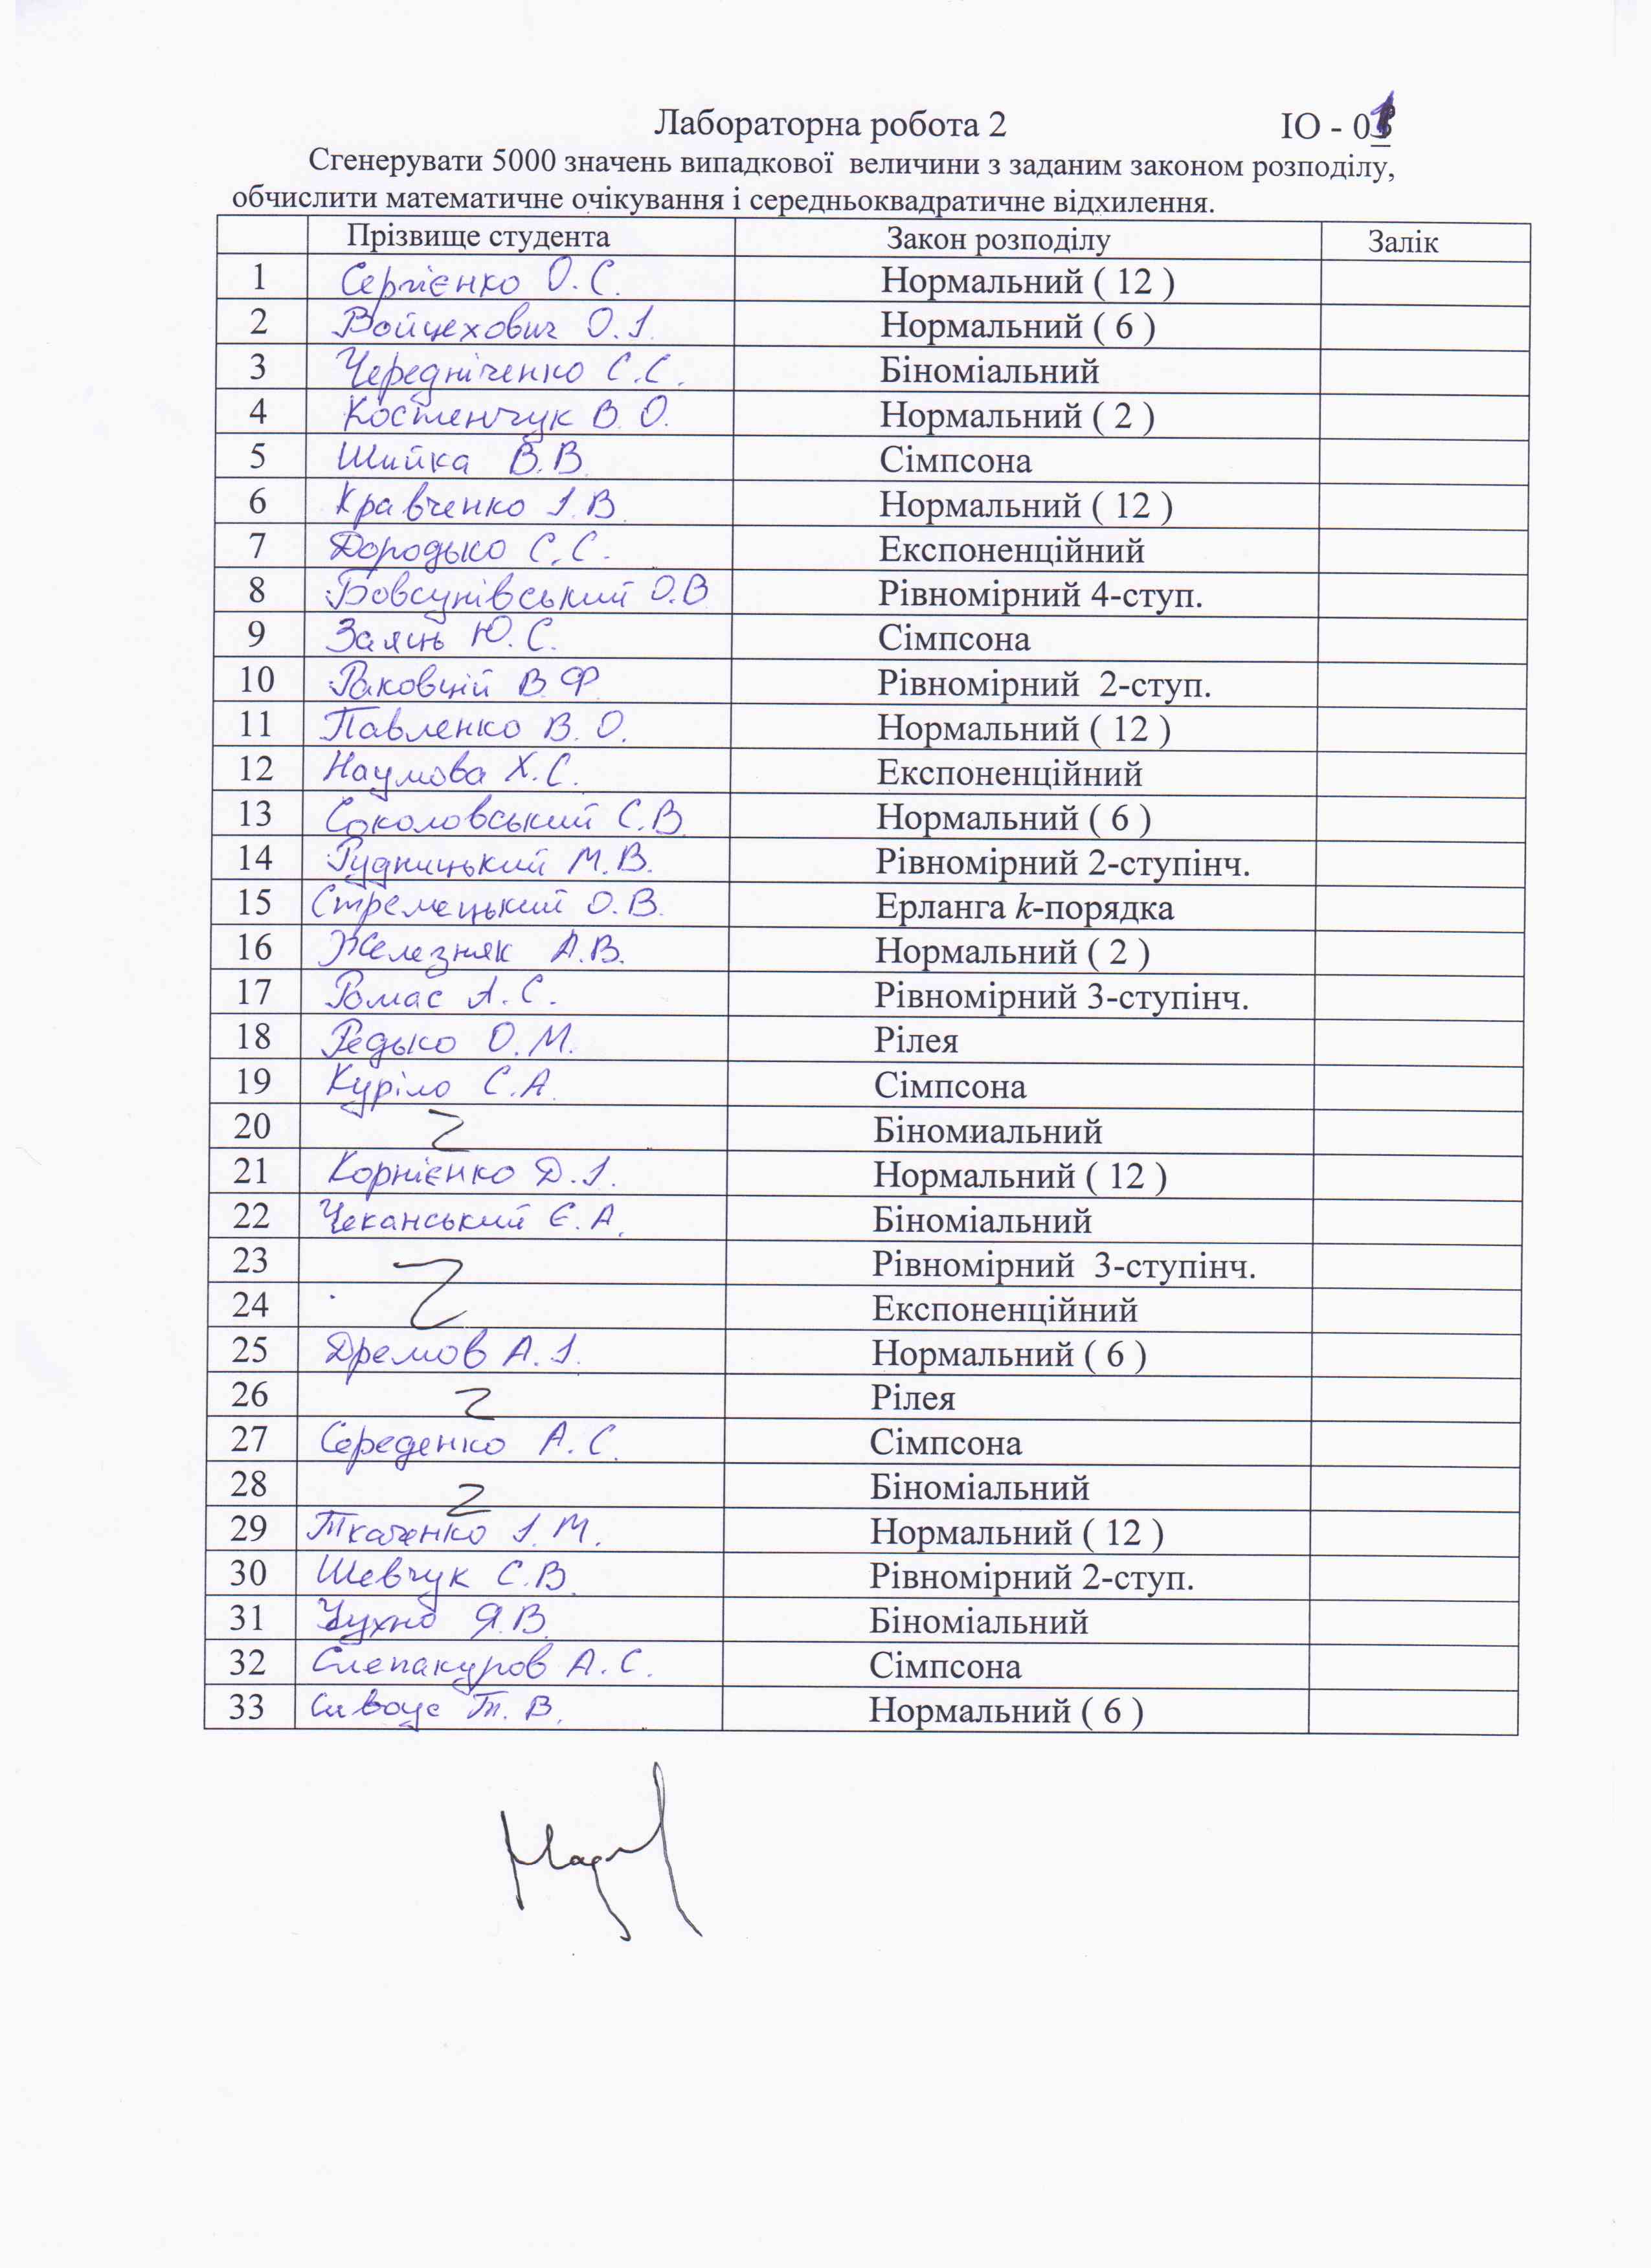 Лабораторна робота 2 ІО - 01
Сгенерувати 5000 значень випадкової величини з заданим законом розподілу,
обчислити математичне очікування і середньоквадратичне відхилення.
Прізвище студента Закон розподілу Залік
1 Сергієнко О. С. Нормальний ( 12 )
2 Войцехович О.І. Нормальний ( 6 )
3 Чередніченко С.С. Біноміальний
4 Костенчук В. О. Нормальний ( 2 )
5 Шийка В.В. Сімпсона
6 Кравченко І.В. Нормальний ( 12 )
7 Дородько С.С. Експоненційний
8 Бовсунівський О.В Рівномірний 4-ступ.
9 Заяць Ю.С. Сімпсона
10 Раковций В.Ф. Рівномірний 2-ступ.
11 Павленко В.О. Нормальний ( 12 )
12 Наумова Х.С. Експоненційний
13 Соколовський С.В. Нормальний ( 6 )
14 Рудницький М.В. Рівномірний 2-ступінч.
15 Стремецький О.В. Ерланга k-порядка
16 Железняк А.В. Нормальний ( 2 )
17 Ромас А.С. Рівномірний 3-ступінч.
18 Редько О.М. Рілея
19 Куріло С.А. Сімпсона
20 Біномиальний
21 Корнієнко Д.І. Нормальний ( 12 )
22 Чеканський Є.А. Біноміальний
23 Рівномірний 3-ступінч.
24 Експоненційний
25 Дремов А.І. Нормальний ( 6 )
26 Рілея
27 Середенко А.С. Сімпсона
28 Біноміальний
29 Ткаченко І.М. Нормальний ( 12 )
30 Шевчук С.В. Рівномірний 2-ступ.
31 Чухно Я.В. Біноміальний
32 Слепакуров А.С. Сімпсона
33 Т.В. Нормальний ( 6 )